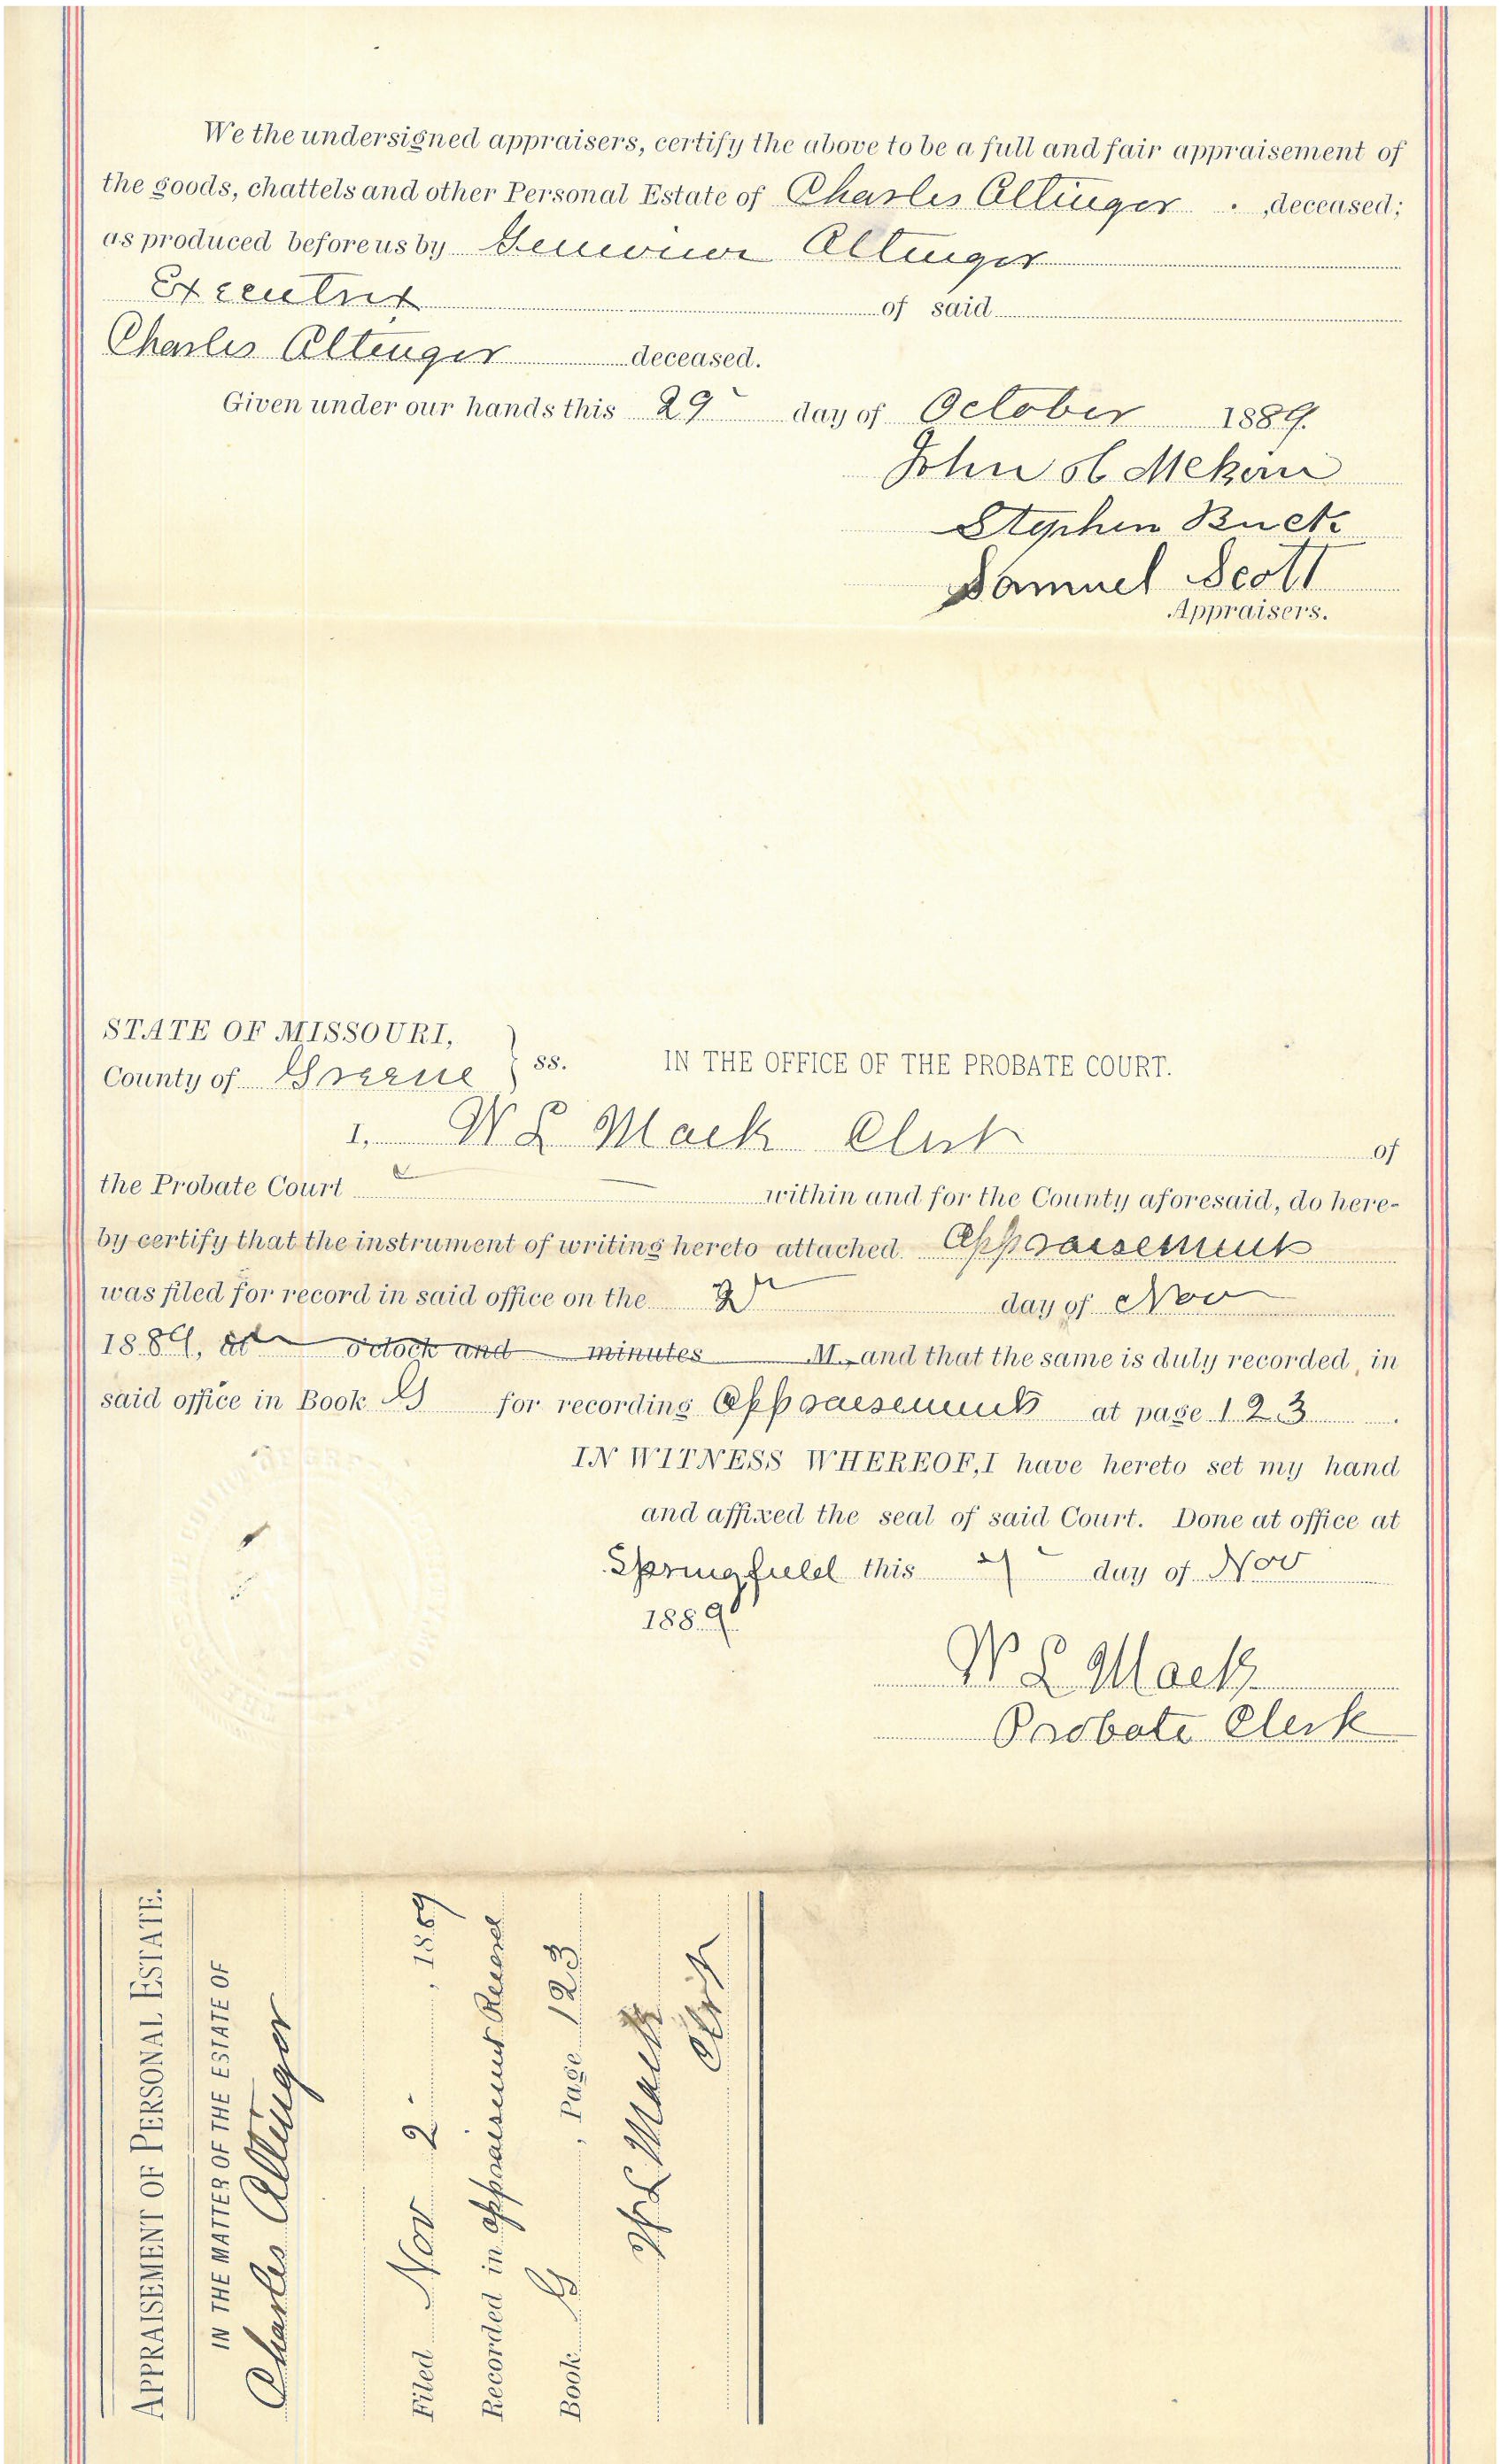 We the undersigned appraisers, certify the above to be a full and fair appraisement of
the goods, chattels and other Personal Estate of Charles Altinger , deceased;
as produced before us by Altinger
Executrix of said
Charles Altinger deceased.
Given under our hands this 29 day of October 1889.
John
Stephen Buck
Samuel Scott
Appraisers.
STATE OF MISSOURI,
County of Greene } ss. IN THE OFFICE OF THE PROBATE COURT.
I, W L Mack Clerk of
the Probate Court within and for the County aforesaid, do here-
by certify that the instrument of writing hereto attached Appraisement
was filed for record in said office on the 2 day of Nov
1889, at o'clock and minutes M., and that the same is duly recorded, in
said office in Book G for recording Appraisements at page 123
IN WITNESS WHEREOF, I have hereto set my hand
and affixed the seal of said Court. Done at office at
Springfield this day of Nov
1889
W L Mack
Probate Clerk
APPRAISEMENT OF PERSONAL ESTATE.
IN THE MATTER OF THE ESTATE OF
Charles Altinger
Filed Nov 2 , 1889
Recorded in appraisement Record
Book G , Page 123
W L Mack
Clerk